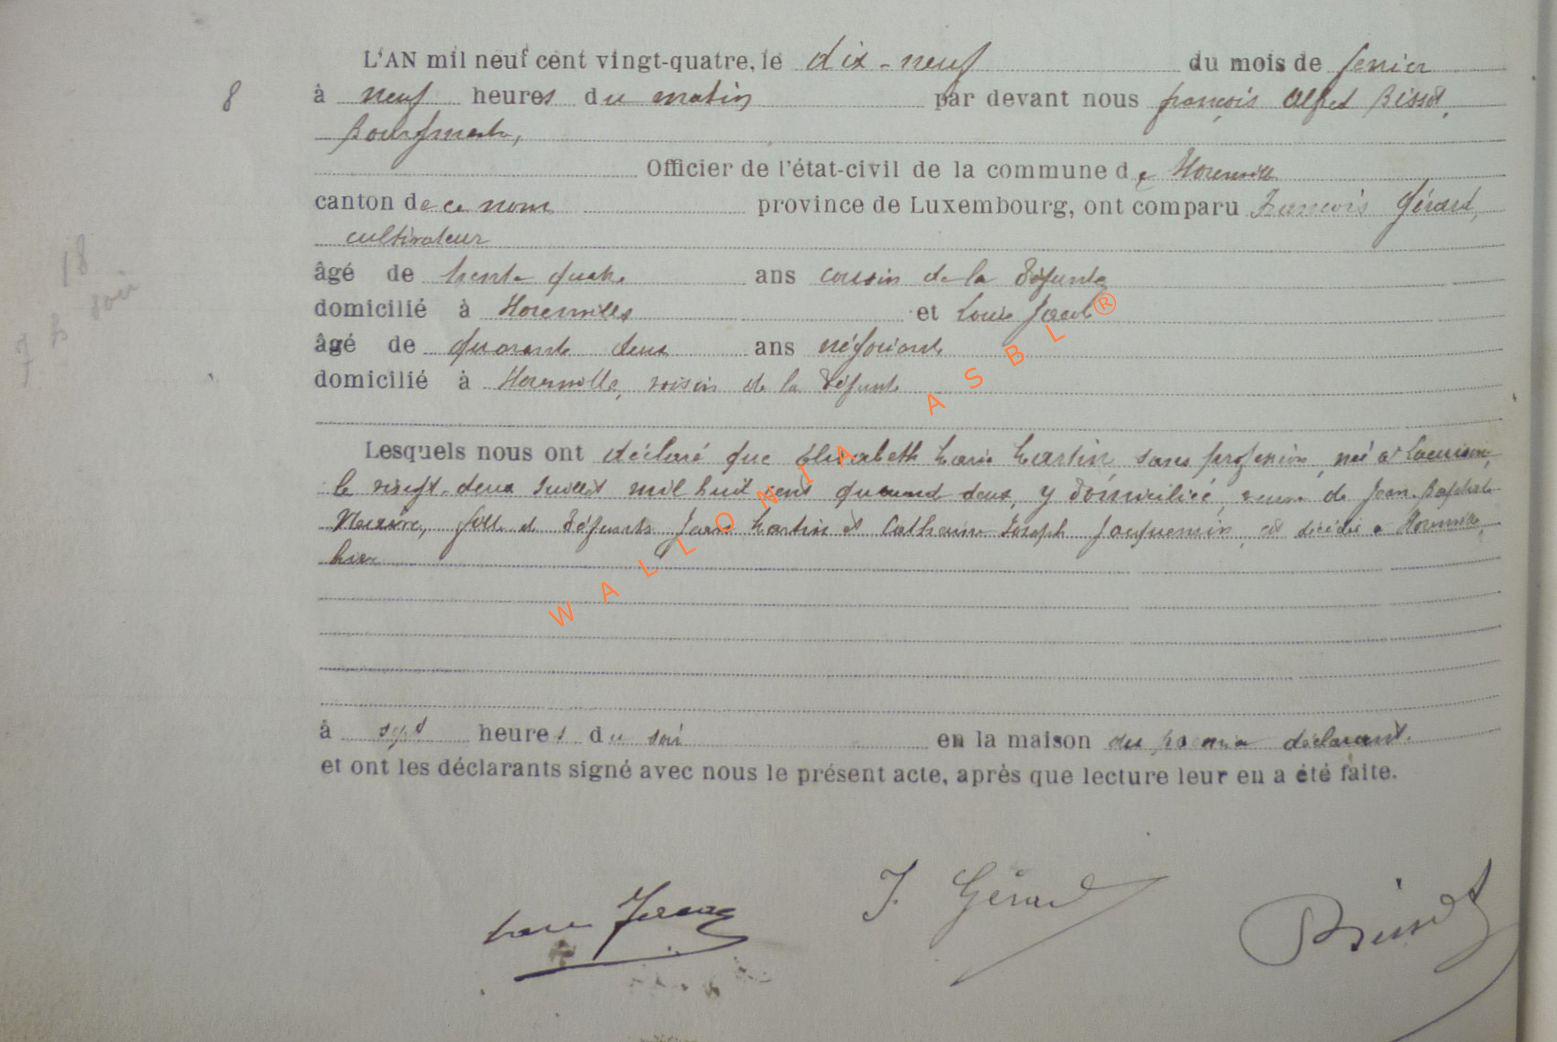 L'AN mil neuf cent vingt-quatre, le dix-neuf du mois de février
8 à neuf heures du matin par devant nous françois Alfred Bissot,
Bourgmestre,
Officier de l'état-civil de la commune de
canton de ce nom province de Luxembourg, ont comparu François Gérard,
cultivateur
âgé de trente quatre ans cousin de la défunte
domicilié à et Louis Jacob
âgé de quarante deux ans négociant
domicilié à voisin de la défunte
Lesquels nous ont déclaré que Elisabeth Marie Martin sans profession, née à
le vingt-deux Juillet mil huit cent quarante deux, y domiciliée, veuve de Jean-Baptiste
fille de défunts Jean Martin et Catherine Joseph Jacquemin, est décédée à
hier
à sept heures du soir en la maison du premier déclarant.
et ont les déclarants signé avec nous le présent acte, après que lecture leur en a été faite.
J. Gérard
Bissot
18
7 h soir
WALLONIA ASBL®